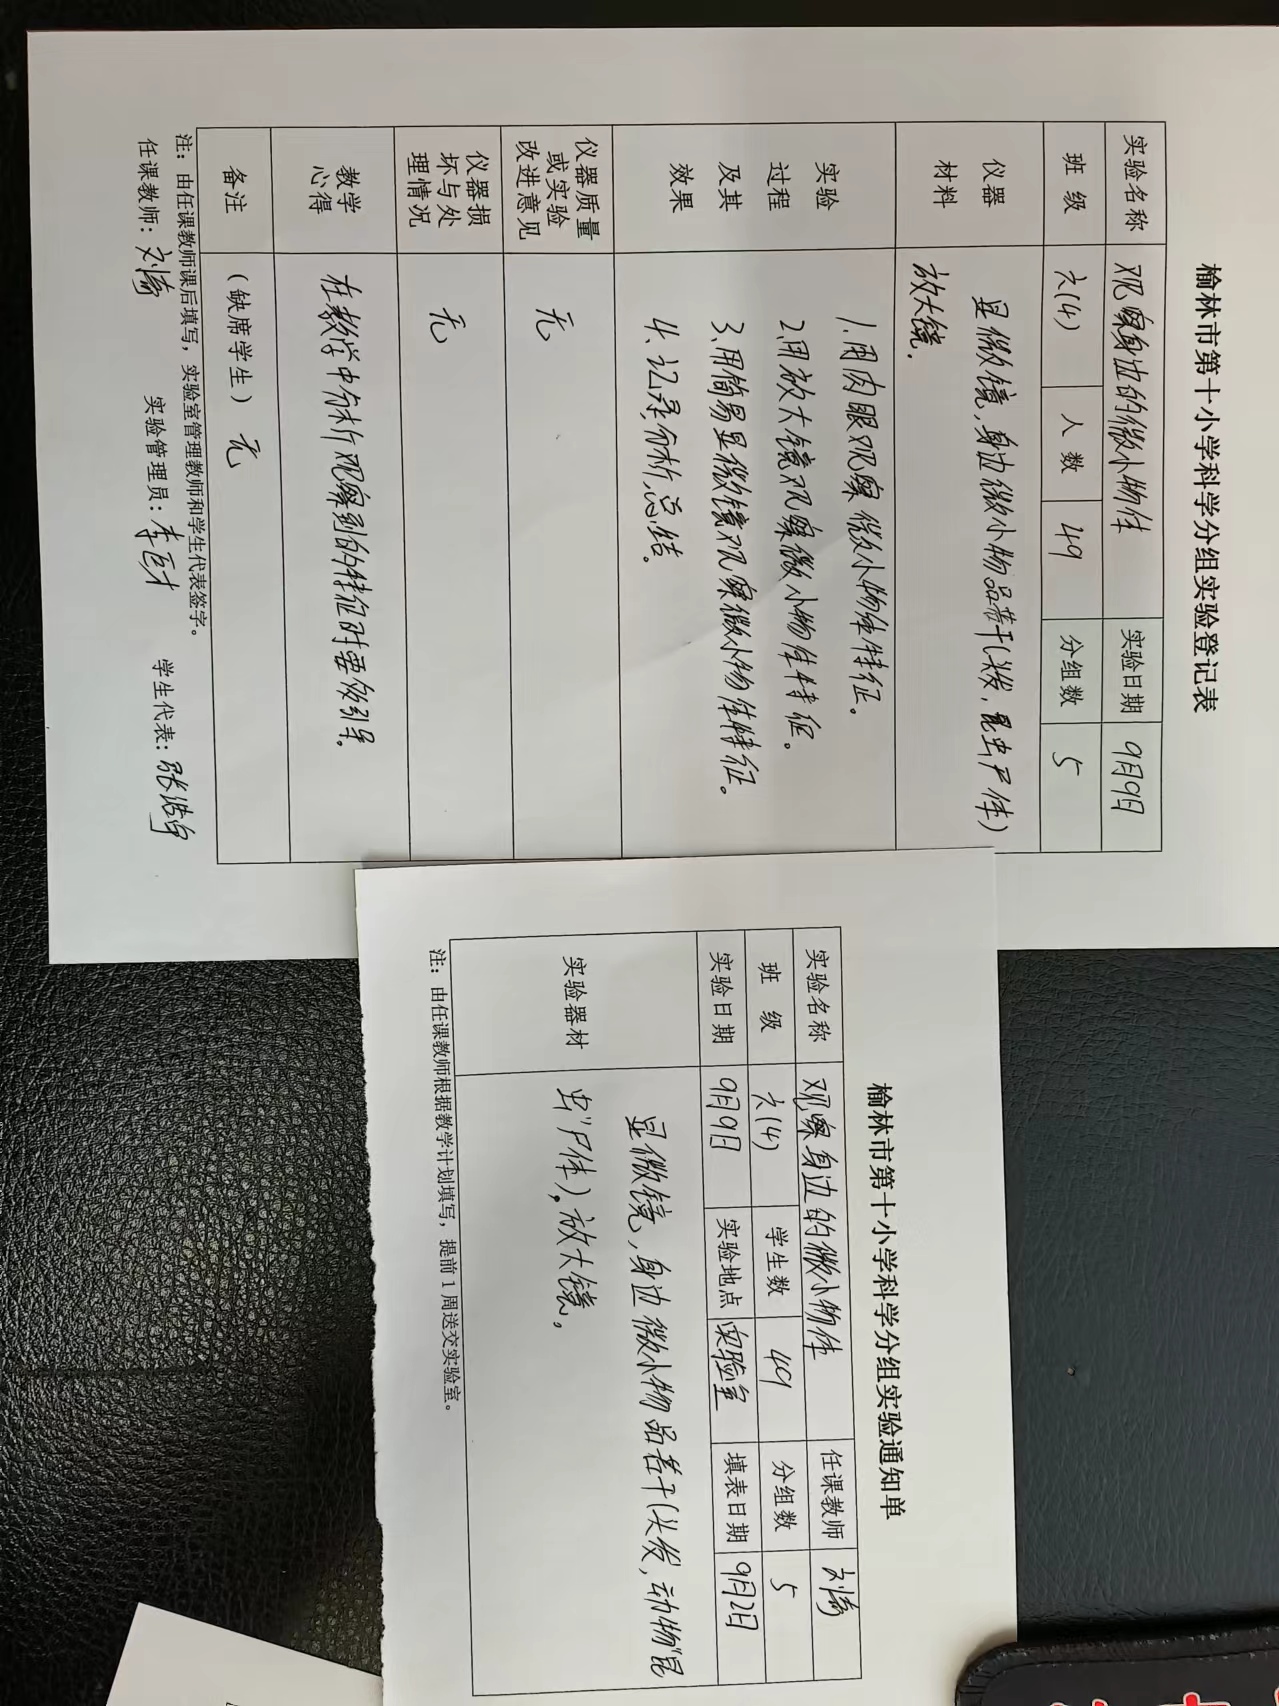 榆林市第十小学科学分组实验登记表
实验名称 观察身边的微小物体 实验日期 9月9日
班级 六(4) 人数 49 分组数 5
仪器材料 显微镜,身边微小物品若干(头发,昆虫尸体)
放大镜.
实验过程及其效果
1.用肉眼观察微小物体特征。
2.用放大镜观察微小物体特征。
3.用简易显微镜观察微小物体特征。
4.记录,分析,总结。
仪器质量或实验改进意见 无
仪器损坏与处理情况 无
教学心得 在教学中分析观察到的特征时要多引导。
备注 (缺席学生) 无
注:由任课教师课后填写,实验室管理教师和学生代表签字。
任课教师: 实验管理员: 学生代表:
榆林市第十小学科学分组实验通知单
实验名称 观察身边的微小物体 任课教师
班级 六(4) 学生数 49 分组数 5
实验日期 9月9日 实验地点 实验室 填表日期 9月2日
实验器材 显微镜,身边微小物品若干(头发,动物昆
虫尸体),放大镜。
注:由任课教师根据教学计划填写,提前1周送交实验室。